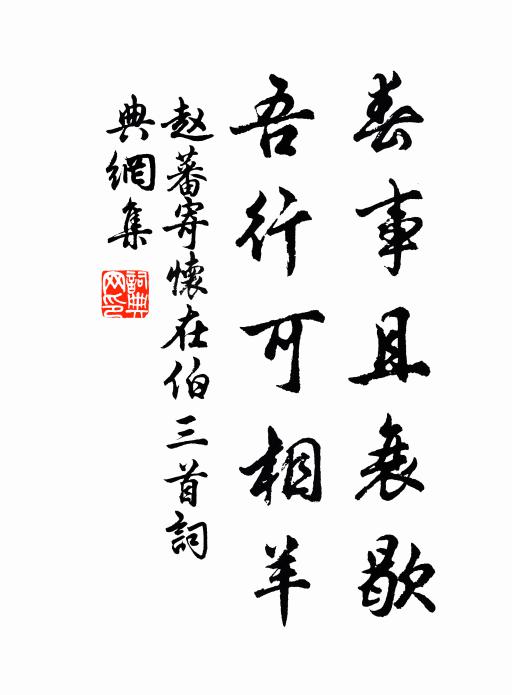 春事且衰歇
吾行可相羊
赵蕃寄懷在伯三首詞
典網集
詞典网印